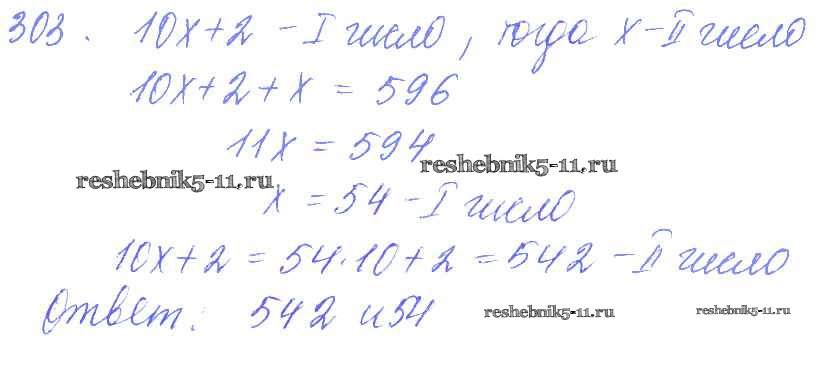 303. 10x+2 - I число, тогда x - II число
10x+2+x = 596
11x = 594
reshebnik5-11.ru reshebnik5-11.ru
x = 54 - I число
10x+2 = 54·10+2 = 542 - II число
Ответ: 542 и 54
reshebnik5-11.ru reshebnik5-11.ru